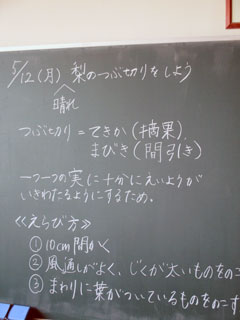 5/12(月) 梨のつぶ切りをしよう
晴れ
つぶせ切り=てきか(摘果)
まびき(間引き)
一つ一つの実に十分にえいようが
いきわたるようにするため。
≪えらび方≫
① 10cm間かく
② 風通しがよく、じくが太いものをのこ
③ まわりに葉がついているものをのこす